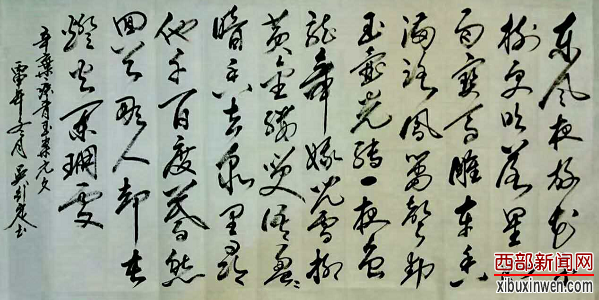 东风夜放花千
树更吹落星如
雨寶马雕车香
满路凤箫声动
玉壶光转一夜鱼
龙舞蛾儿雪柳
黄金缕笑语盈盈
暗香去众里寻
他千百度蓦然
回首那人却在
灯火阑珊处
辛弃疾青玉案元夕
年冬月 书
西部新闻网
xibuxinwen.com